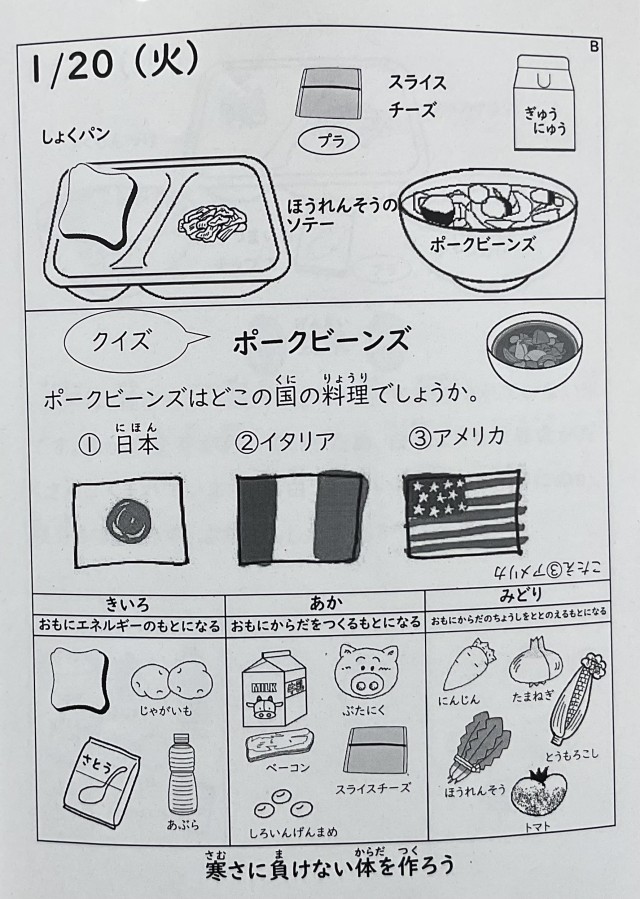 1/20（火）
B
スライス
チーズ
プラ
ぎゅう
にゅう
しょくパン
ほうれんそうの
ソテー
ポークビーンズ
クイズ
ポークビーンズ
くに りょうり
ポークビーンズはどこの国の料理でしょうか。
にほん
① 日本 ②イタリア ③アメリカ
こたえ③アメリカ
きいろ
おもにエネルギーのもとになる
じゃがいも
さとう
あぶら
あか
おもにからだをつくるもとになる
MILK
ぶたにく
ベーコン
スライスチーズ
しろいんげんまめ
みどり
おもにからだのちょうしをととのえるもとになる
にんじん
たまねぎ
とうもろこし
ほうれんそう
トマト
さむ ま からだ つく
寒さに負けない体を作ろう